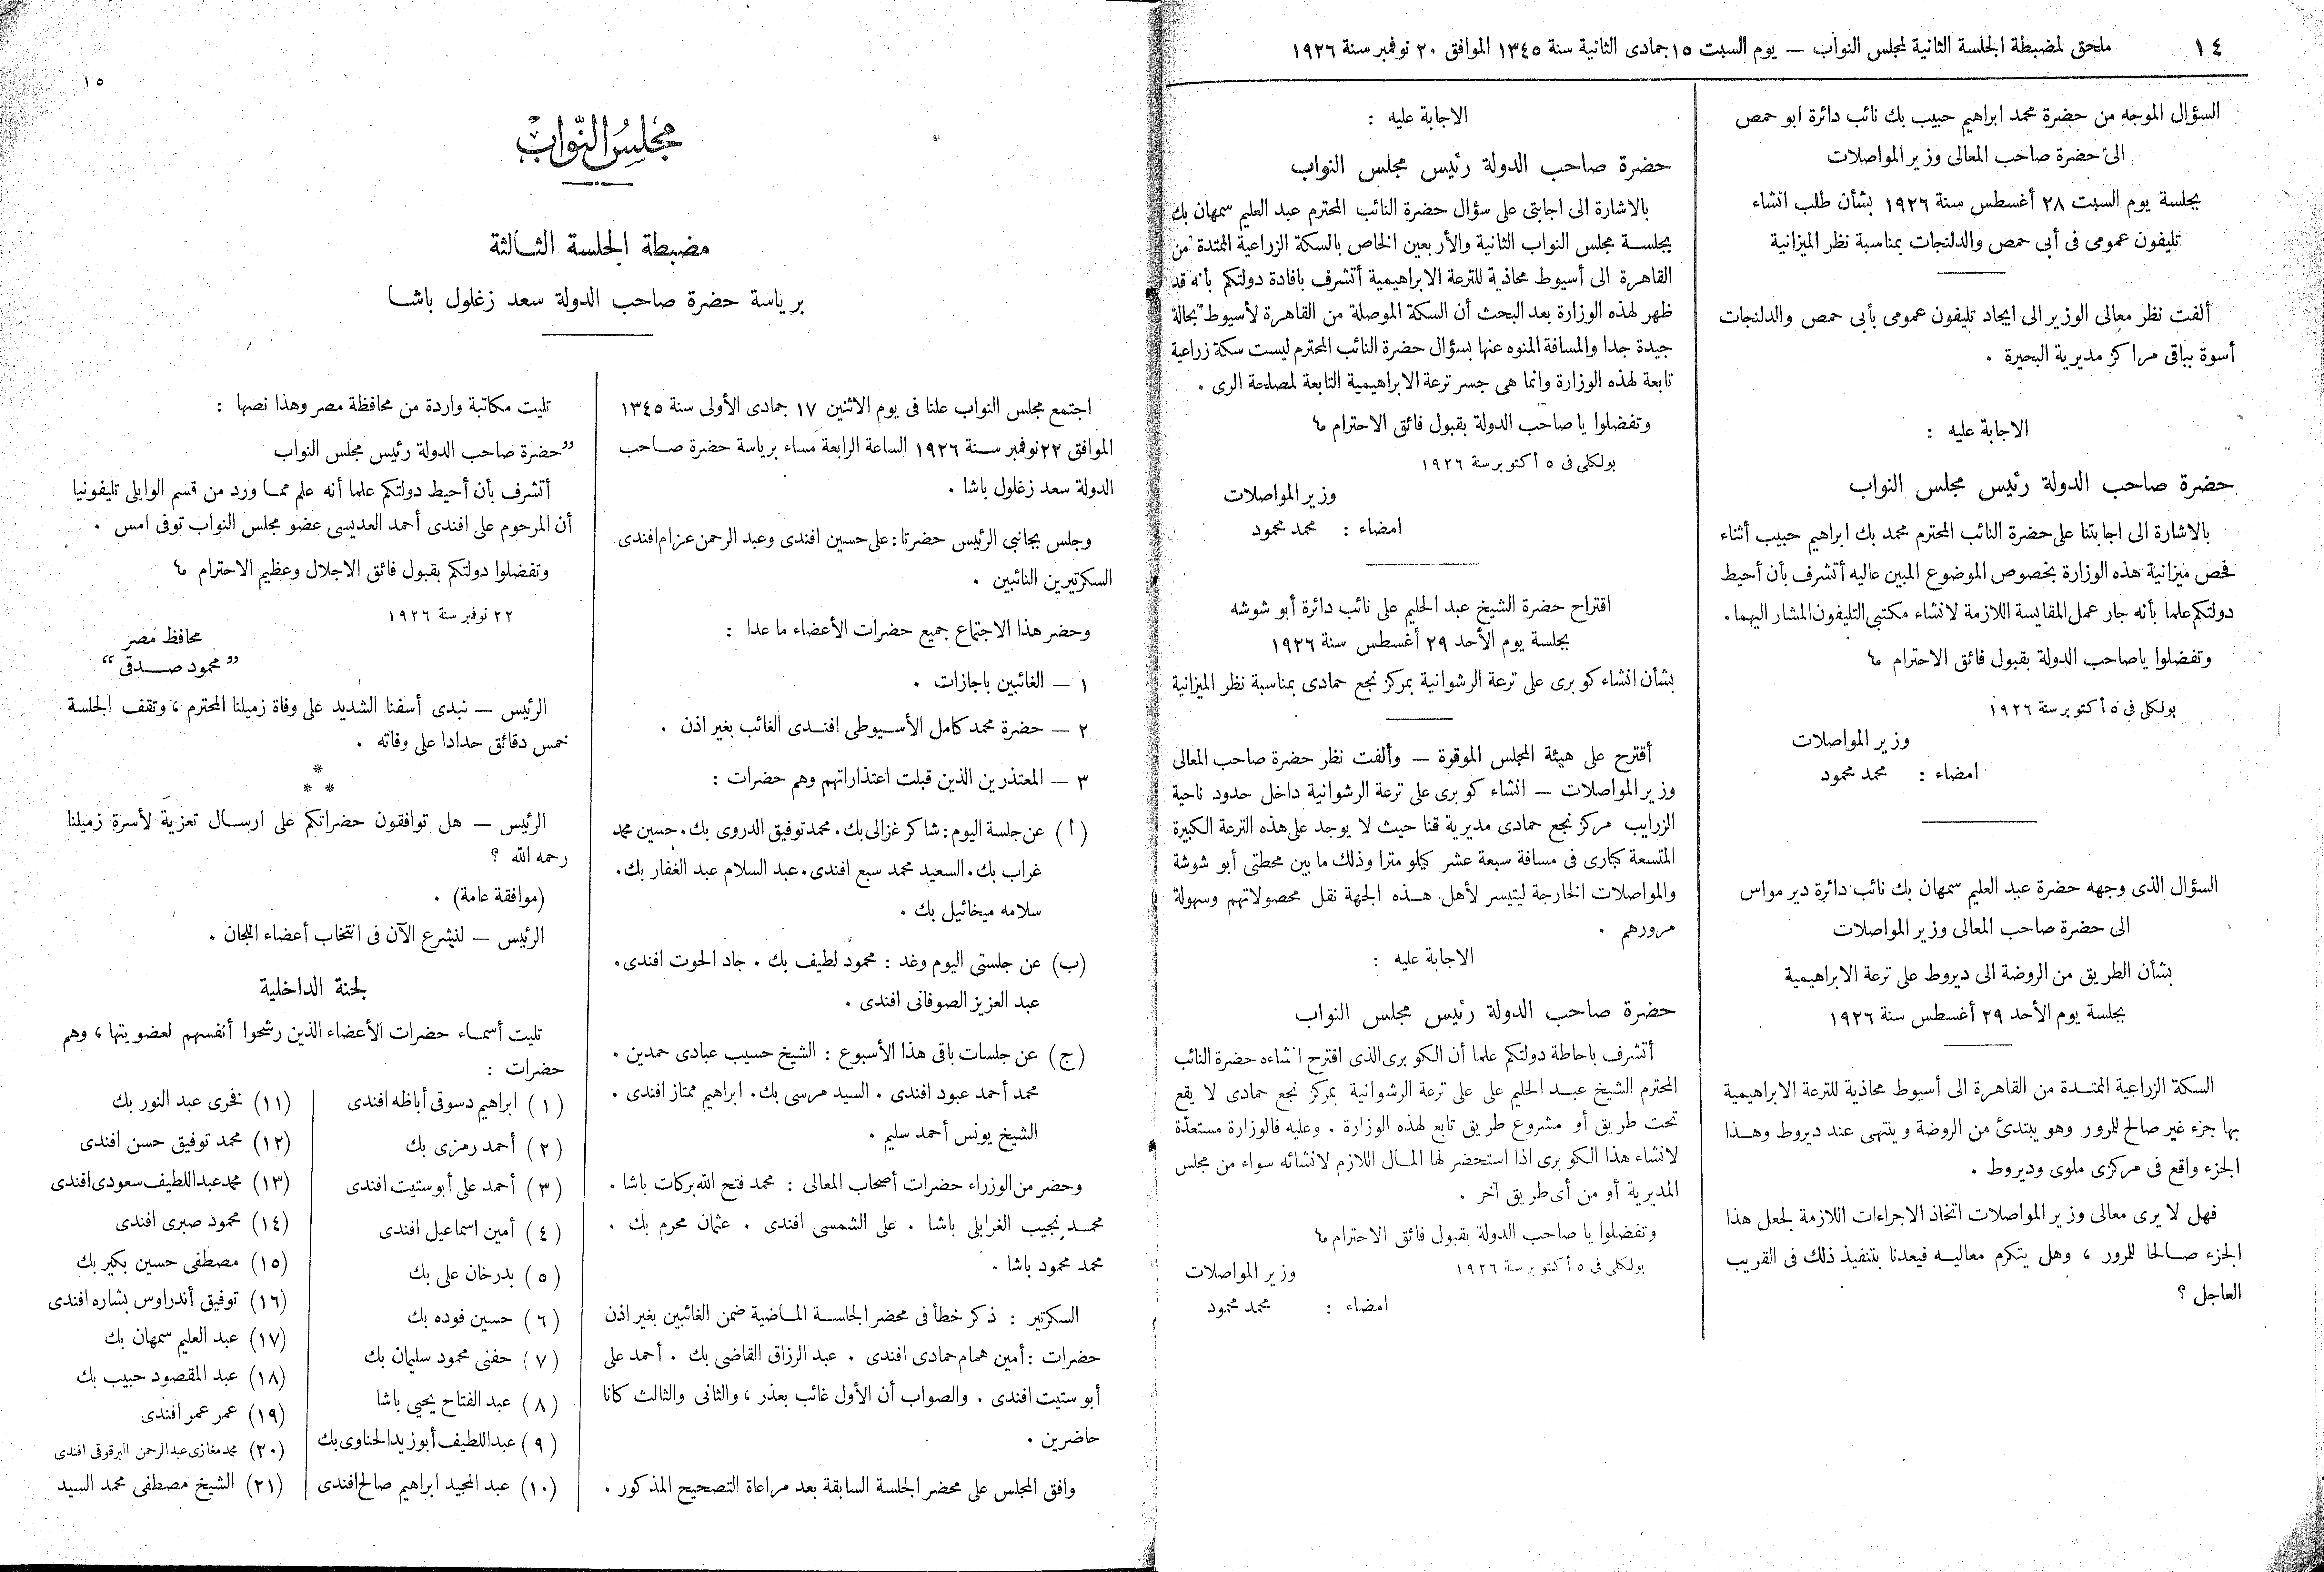 ١٤
ملحق لمضبطة الجلسة الثانية لمجلس النواب — يوم السبت ١٥ جمادى الثانية سنة ١٣٤٥ الموافق ٢٠ نوفمبر سنة ١٩٢٦
السؤال الموجه من حضرة محمد ابراهيم حبيب بك نائب دائرة ابو حمص
الى حضرة صاحب المعالى وزير المواصلات
بجلسة يوم السبت ٢٨ أغسطس سنة ١٩٢٦ بشأن طلب انشاء
تليفون عمومى فى أبى حمص والدلنجات بمناسبة نظر الميزانية
ألفت نظر معالى الوزير الى ايجاد تليفون عمومى بأبى حمص والدلنجات
أسوة بباقى مراكز مديرية البحيرة .
الاجابة عليه :
حضرة صاحب الدولة رئيس مجلس النواب
بالاشارة الى اجابتنا على حضرة النائب المحترم محمد بك ابراهيم حبيب أثناء
فحص ميزانية هذه الوزارة بخصوص الموضوع المبين عاليه أتشرف بأن أحيط
دولتكم علما بأنه جار عمل المقايسة اللازمة لانشاء مكتبى التليفون المشار اليهما .
وتفضلوا ياصاحب الدولة بقبول فائق الاحترام ما
بولكلى فى ٥ أكتوبر سنة ١٩٢٦
وزير المواصلات
امضاء : محمد محمود
السؤال الذى وجهه حضرة عبد العليم سمهان بك نائب دائرة دير مواس
الى حضرة صاحب المعالى وزير المواصلات
بشأن الطريق من الروضة الى ديروط على ترعة الابراهيمية
بجلسة يوم الأحد ٢٩ أغسطس سنة ١٩٢٦
السكة الزراعية الممتدة من القاهرة الى أسيوط محاذية للترعة الابراهيمية
بها جزء غير صالح للمرور وهو يبتدئ من الروضة وينتهى عند ديروط وهذا
الجزء واقع فى مركزى ملوى وديروط .
فهل لا يرى معالى وزير المواصلات اتخاذ الاجراءات اللازمة لجعل هذا
الجزء صالحا للمرور ، وهل يتكرم معاليه فيعدنا بتنفيذ ذلك فى القريب
العاجل ؟
الاجابة عليه :
حضرة صاحب الدولة رئيس مجلس النواب
بالاشارة الى اجابتى على سؤال حضرة النائب المحترم عبد العليم سمهان بك
بجلسة مجلس النواب الثانية والأربعين الخاص بالسكة الزراعية الممتدة من
القاهرة الى أسيوط محاذية للترعة الابراهيمية أتشرف بافادة دولتكم بأنه قد
ظهر لهذه الوزارة بعد البحث أن السكة الموصلة من القاهرة لأسيوط بحالة
جيدة جدا والمسافة المنوه عنها بسؤال حضرة النائب المحترم ليست سكة زراعية
تابعة لهذه الوزارة وانما هى جسر ترعة الابراهيمية التابعة لمصلحة الرى .
وتفضلوا يا صاحب الدولة بقبول فائق الاحترام ما
بولكلى فى ٥ أكتوبر سنة ١٩٢٦
وزير المواصلات
امضاء : محمد محمود
اقتراح حضرة الشيخ عبد الحليم على نائب دائرة أبو شوشه
بجلسة يوم الأحد ٢٩ أغسطس سنة ١٩٢٦
بشأن انشاء كوبرى على ترعة الرشوانية بمركز نجع حمادى بمناسبة نظر الميزانية
أقترح على هيئة المجلس الموقرة — وألفت نظر حضرة صاحب المعالى
وزير المواصلات — انشاء كوبرى على ترعة الرشوانية داخل حدود ناحية
الزرايب مركز نجع حمادى مديرية قنا حيث لا يوجد على هذه الترعة الكبيرة
المتسعة كبارى فى مسافة سبعة عشر كيلو مترا وذلك ما بين محطتى أبو شوشة
والمواصلات الخارجة ليتيسر لأهل هذه الجهة نقل محصولاتهم وسهولة
مرورهم .
الاجابة عليه :
حضرة صاحب الدولة رئيس مجلس النواب
أتشرف باحاطة دولتكم علما أن الكوبرى الذى اقترح انشاءه حضرة النائب
المحترم الشيخ عبد الحليم على على ترعة الرشوانية بمركز نجع حمادى لا يقع
تحت طريق أو مشروع طريق تابع لهذه الوزارة . وعليه فالوزارة مستعدّة
لانشاء هذا الكوبرى اذا استحضر لها المال اللازم لانشائه سواء من مجلس
المديرية أو من أى طريق آخر .
وتفضلوا يا صاحب الدولة بقبول فائق الاحترام ما
بولكلى فى ٥ أكتوبر سنة ١٩٢٦
وزير المواصلات
امضاء : محمد محمود
١٥
مجلس النواب
مضبطة الجلسة الثالثة
برياسة حضرة صاحب الدولة سعد زغلول باشا
اجتمع مجلس النواب علنا فى يوم الاثنين ١٧ جمادى الأولى سنة ١٣٤٥
الموافق ٢٢ نوفمبر سنة ١٩٢٦ الساعة الرابعة مساء برياسة حضرة صاحب
الدولة سعد زغلول باشا .
وجلس بجانبى الرئيس حضرتا : على حسين افندى وعبد الرحمن عزام افندى
السكرتيرين النائبين .
وحضر هذا الاجتماع جميع حضرات الأعضاء ما عدا :
١ — الغائبين باجازات .
٢ — حضرة محمد كامل الأسيوطى افندى الغائب بغير اذن .
٣ — المعتذرين الذين قبلت اعتذاراتهم وهم حضرات :
(أ) عن جلسة اليوم : شاكر غزالى بك . محمد توفيق الدروى بك . حسين محمد
غراب بك . السعيد محمد سبع افندى . عبد السلام عبد الغفار بك .
سلامه ميخائيل بك .
(ب) عن جلستى اليوم وغد : محمود لطيف بك . جاد الحوت افندى .
عبد العزيز الصوفانى افندى .
(ج) عن جلسات باقى هذا الأسبوع : الشيخ حسيب عبادى حمدين .
محمد أحمد عبود افندى . السيد مرسى بك . ابراهيم ممتاز افندى .
الشيخ يونس أحمد سليم .
وحضر من الوزراء حضرات أصحاب المعالى : محمد فتح الله بركات باشا .
محمد نجيب الغرابلى باشا . على الشمسى افندى . عثمان محرم بك .
محمد محمود باشا .
السكرتير : ذكر خطأ فى محضر الجلسة الماضية ضمن الغائبين بغير اذن
حضرات : أمين همام حمادى افندى . عبد الرزاق القاضى بك . أحمد على
أبو ستيت افندى . والصواب أن الأول غائب بعذر ، والثانى والثالث كانا
حاضرين .
وافق المجلس على محضر الجلسة السابقة بعد مراعاة التصحيح المذكور .
تليت مكاتبة واردة من محافظة مصر وهذا نصها :
”حضرة صاحب الدولة رئيس مجلس النواب
أتشرف بأن أحيط دولتكم علما أنه علم مما ورد من قسم الوايلى تليفونيا
أن المرحوم على افندى أحمد العديسى عضو مجلس النواب توفى امس .
وتفضلوا دولتكم بقبول فائق الاجلال وعظيم الاحترام ما
٢٢ نوفمبر سنة ١٩٢٦
محافظ مصر
”محمود صدقى“
الرئيس — نبدى أسفنا الشديد على وفاة زميلنا المحترم ، وتقف الجلسة
خمس دقائق حدادا على وفاته .
*
* *
الرئيس — هل توافقون حضراتكم على ارسال تعزية لأسرة زميلنا
رحمه الله ؟
(موافقة عامة) .
الرئيس — لنشرع الآن فى انتخاب أعضاء اللجان .
لجنة الداخلية
تليت أسماء حضرات الأعضاء الذين رشحوا أنفسهم لعضويتها ، وهم
حضرات :
(١) ابراهيم دسوقى أباظه افندى
(٢) أحمد رمزى بك
(٣) أحمد على أبو ستيت افندى
(٤) أمين اسماعيل افندى
(٥) بدرخان على بك
(٦) حسين فوده بك
(٧) حفنى محمود سليمان بك
(٨) عبد الفتاح يحيى باشا
(٩) عبد اللطيف أبو زيد الحناوى بك
(١٠) عبد المجيد ابراهيم صالح افندى
(١١) فخرى عبد النور بك
(١٢) محمد توفيق حسن افندى
(١٣) محمد عبد اللطيف سعودى افندى
(١٤) محمود صبرى افندى
(١٥) مصطفى حسين بكير بك
(١٦) توفيق أندراوس بشاره افندى
(١٧) عبد العليم سمهان بك
(١٨) عبد المقصود حبيب بك
(١٩) عمر عمر افندى
(٢٠) محمد مغازى عبد الرحمن البرقوقى افندى
(٢١) الشيخ مصطفى محمد السيد